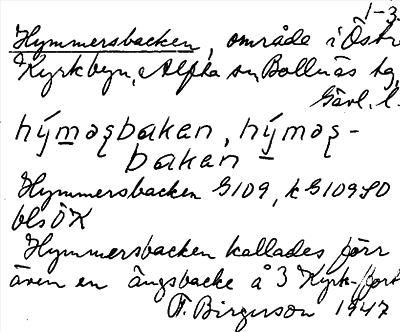 1-3.
Hymmersbacken, område i Östr
Kyrkbyn, Alfta sn, Bollnäs tg,
Gävl. l.
hým̲əʂbakan, hým̲əʂ-
bakan
Hymmersbacken G109, k G109 SO
bls ÖK
Hymmersbacken kallades förr
även en ängsbacke å 3 Kyrk-
F. Birgerson 1947